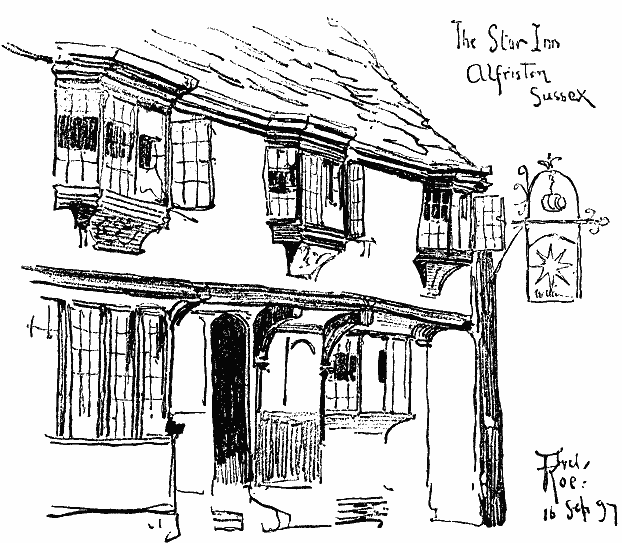 The Star Inn
Alfriston
Sussex
Fred,
Roe:
16 Sep 97